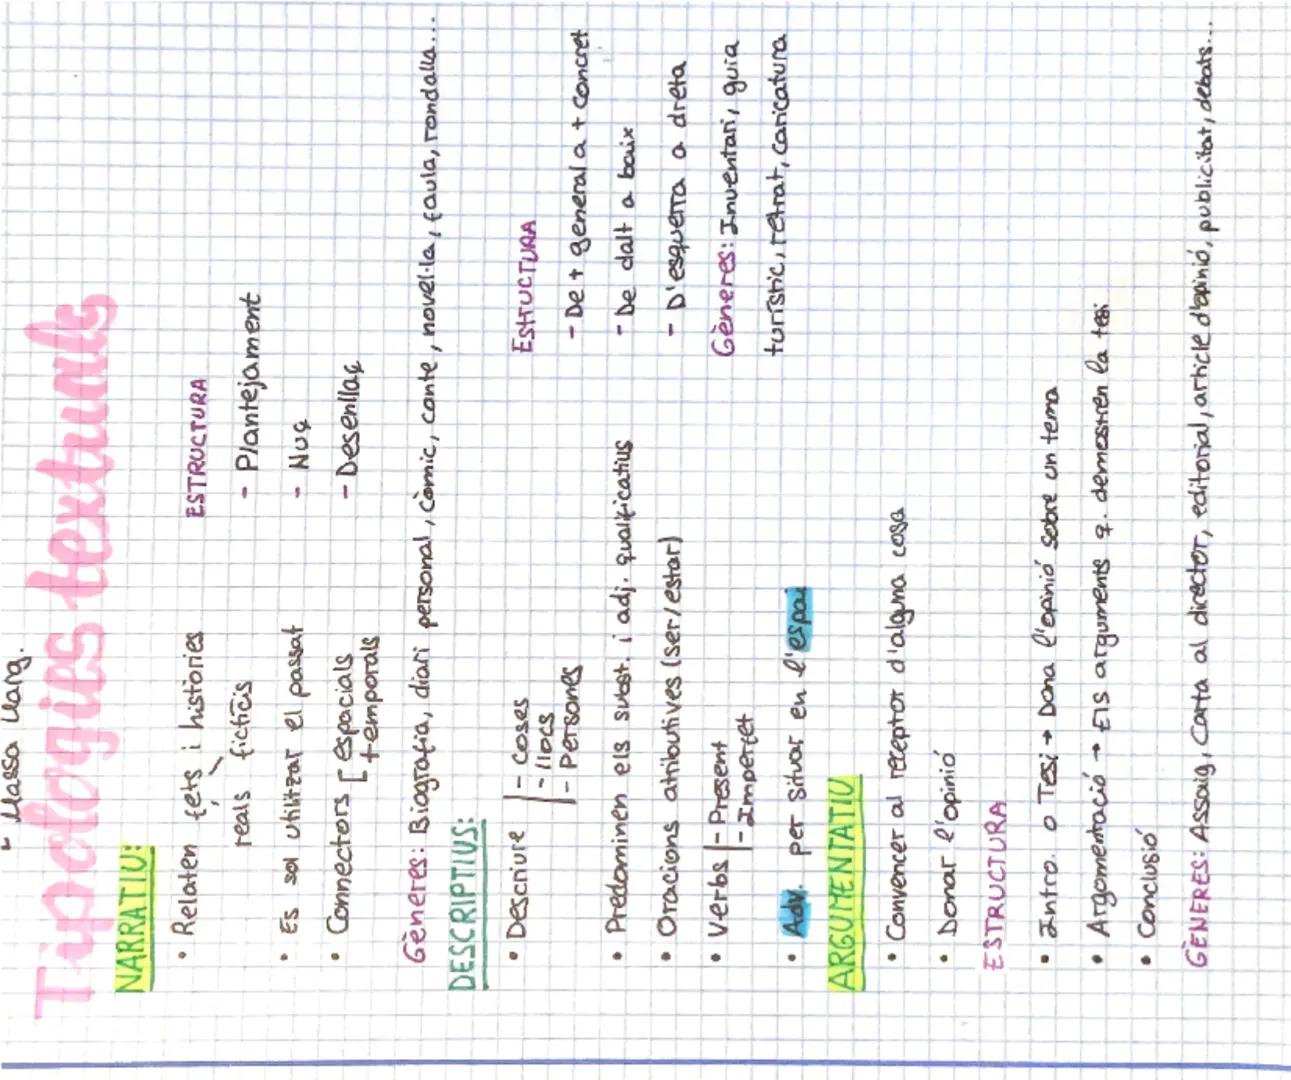 - Massa llarg.
Tipologies textuals
NARRATIU:
• Relaten fets i històries
reals ficticis
• Es sol utilitzar el passat
• Connectors [ espacials
temporals
ESTRUCTURA
- Plantejament
- Nuç
- Desenllaç
Gèneres: Biografia, diari personal, còmic, conte, novel·la, faula, rondalla...
DESCRIPTIUS:
• Descriure - coses
- llocs
- Persones
• Predominen els subst. i adj. qualificatius
• Oracions atributives (ser/estar)
• Verbs - Present
- Imperfet
• Adv. per situar en l'espai
ESTRUCTURA
- De + general a + concret
- De dalt a baix
- D'esquerra a dreta
Gèneres: Inventari, guia
turístic, retrat, caricatura
ARGUMENTATIU
• Convencer al receptor d'alguna cosa
• Donar l'opinió
ESTRUCTURA
• Intro. o Tesi → Dona l'opinió sobre un tema
• Argomentació → Els arguments q. demostren la tesi
• Conclusió
GÈNERES: Assaig, Carta al director, editorial, article d'opinió, publicitat, debats...